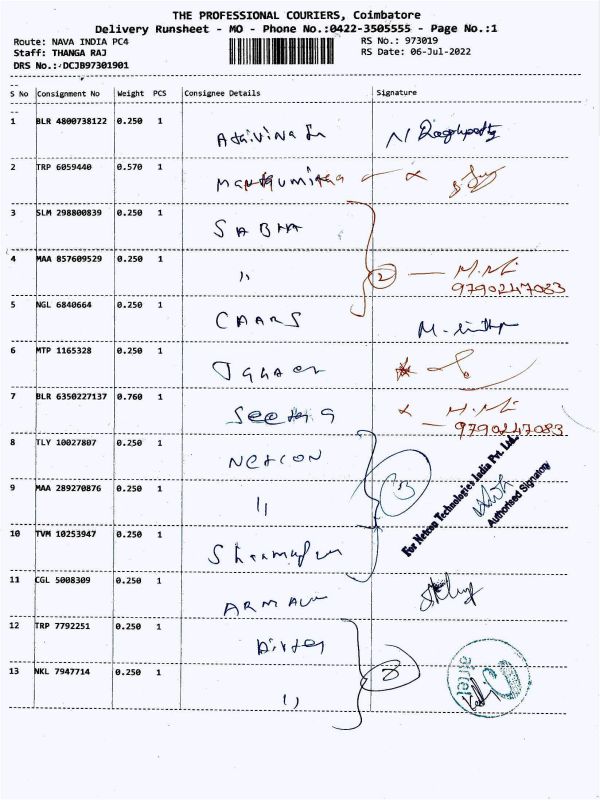 THE PROFESSIONAL COURIERS, Coimbatore
Delivery Runsheet - MO - Phone No.:0422-3505555 - Page No.:1
Route: NAVA INDIA PC4 RS No.: 973019
Staff: THANGA RAJ RS Date: 06-Jul-2022
DRS No.:-DCJB97301901
S No Consignment No Weight PCS Consignee Details Signature
1 BLR 4800738122 0.250 1
2 TRP 6059440 0.570 1
3 SLM 298800839 0.250 1 SABHA
4 MAA 857609529 0.250 1 " 2 9790247083
5 NGL 6840664 0.250 1 CAARS
6 MTP 1165328 0.250 1
7 BLR 6350227137 0.760 1 9790247083
8 TLY 10027807 0.250 1 NETCON
For Netcon Technologies India Pvt. Ltd.,
Authorised Signatory
9 MAA 289270876 0.250 1 "
10 TVM 10253947 0.250 1
11 CGL 5008309 0.250 1
12 TRP 7792251 0.250 1 Airtel
13 NKL 7947714 0.250 1 "
airtel